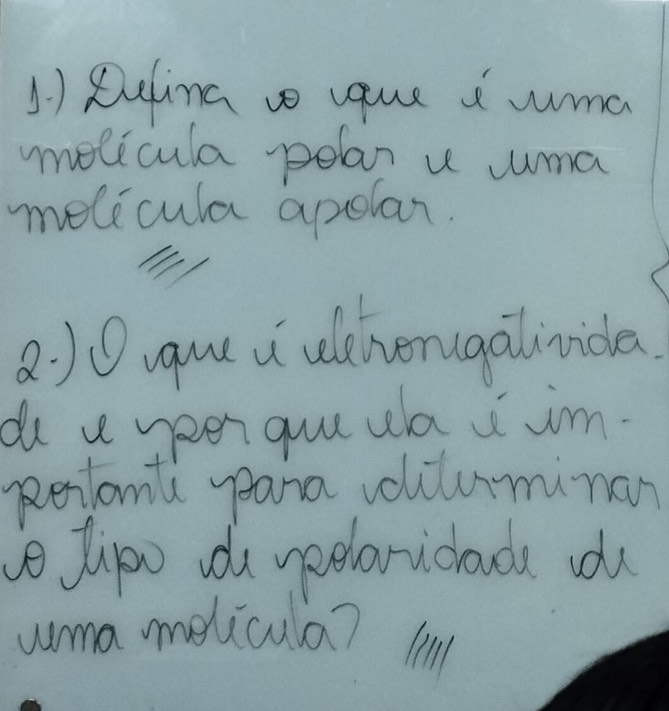 1-) Defina o que é uma
molécula polar e uma
molécula apolar.
2-) O que é eletronegativida-
de e por que ela é im-
portante para determinar
o tipo de polaridade de
uma molécula?